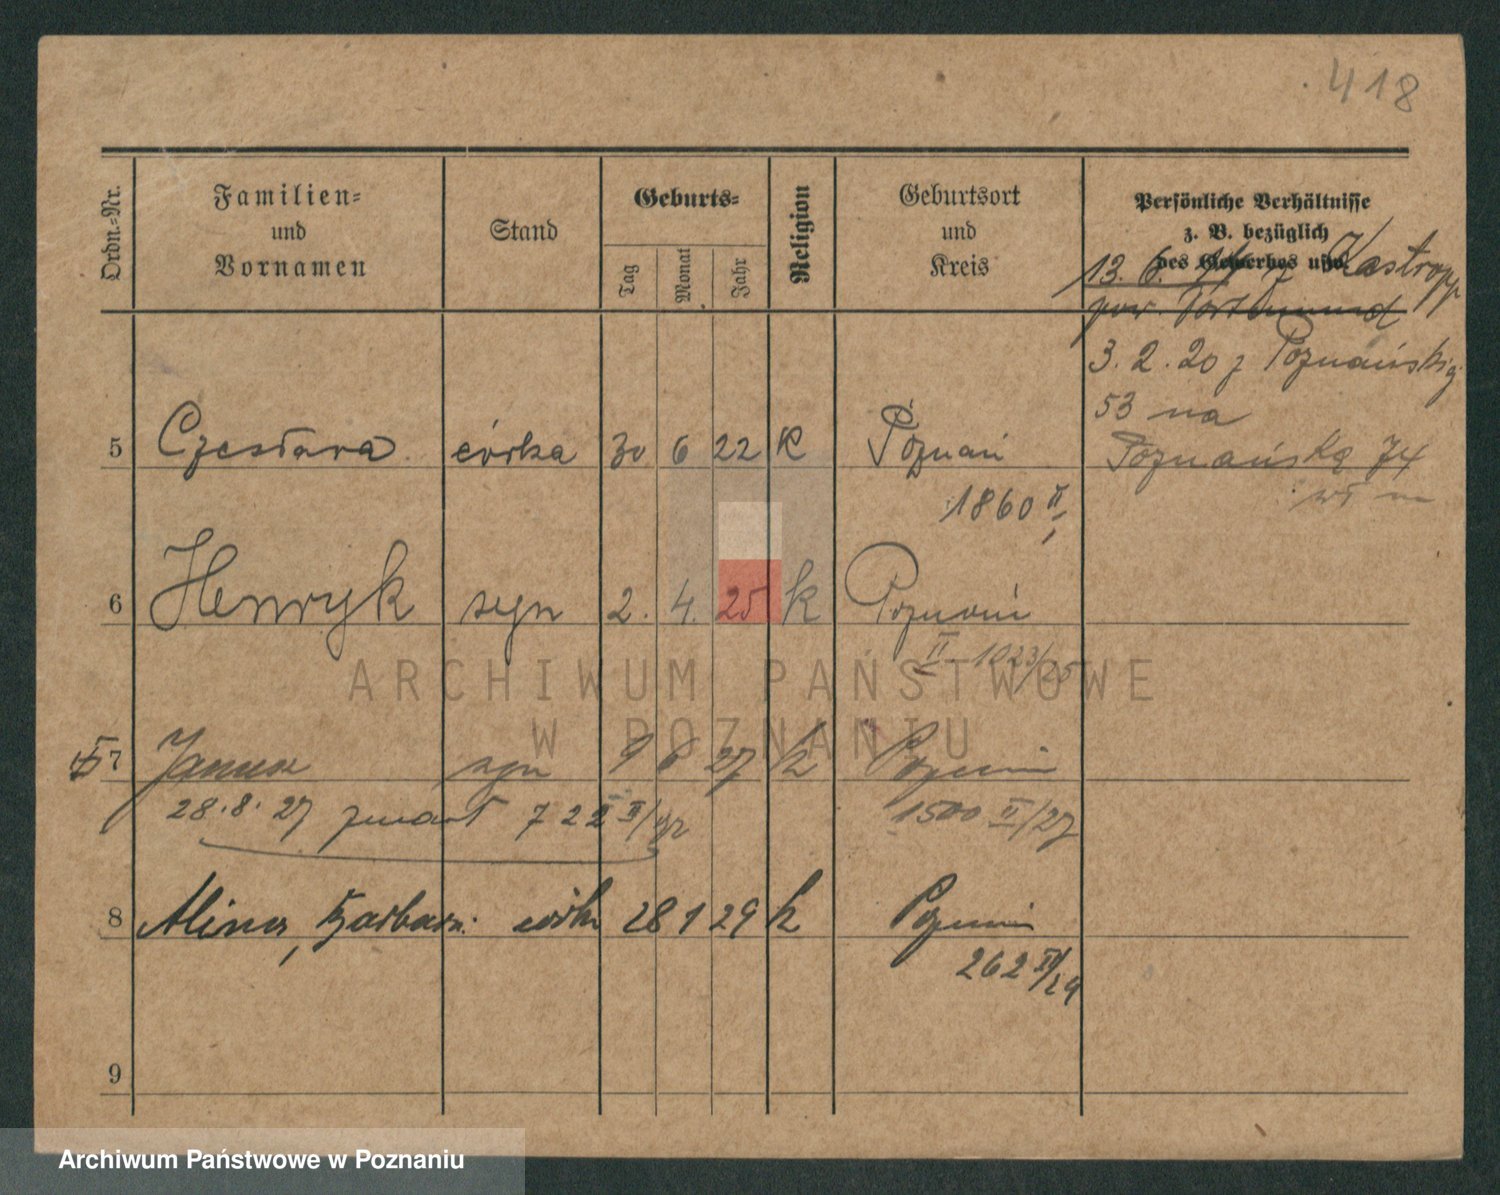 418
Ordn.-Nr.
Familien-
und
Vornamen
Stand
Geburts-
Tag
Monat
Jahr
Religion
Geburtsort
und
Kreis
Persönliche Verhältnisse
z. B. bezüglich
des Gewerbes usw.
13. 6. z Kastropp
pow. Dortmund
3. 2. 20 z Poznańskiej
53 na
Poznańską 74
5 Czesława córka 30 6 22 K Poznań
1860 II
6 Henryk syn 2. 4. 25 k Poznań
II 1023/25
7 Janusz syn 9 6 27 k Poznań
28. 8. 27 zmarł 722 II/27 1500 II/27
8 Alina, Barbara córka 28 1 29 k Poznań
262 II/29
9
ARCHIWUM PAŃSTWOWE
W POZNANIU
Archiwum Państwowe w Poznaniu